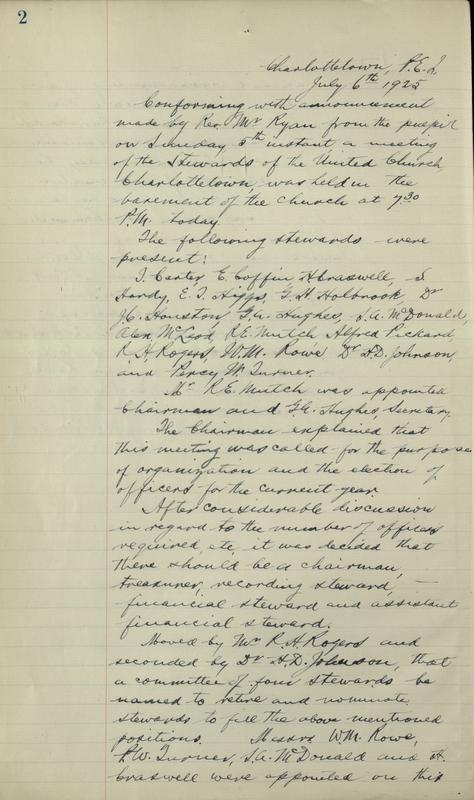 2
Charlottetown, P.E.I.
July 6th 1925
Conforming with announcement
made by Rev. Mr Ryan from the pulpit
on Sunday 5th instant, a meeting
of the Stewards of the United Church
Charlottetown, was held in the
basement of the church at 7.30
P.M. today.
The following stewards were
present:
T. Carter, E. Coffin, A Craswell, S
Hardy, E. T. Higgs, G. H. Holbrook, Dr
J.C. Houston, G.A. Hughes, S.A. McDonald,
Alex. McLeod, R.E. Mutch, Alfred Pickard,
R. H. Rogers, W.M. Rowe, Dr H.D. Johnson,
and Percy W. Turner.
Mr R.E. Mutch was appointed
Chairman and G.A. Hughes, Secretary.
The Chairman explained that
this meeting was called for the purpose
of organization and the election of
officers for the current year.
After considerable discussion
in regard to the number of officers
required, etc, it was decided that
there should be a chairman,
treasurer, recording steward, —
financial steward and assistant
financial steward.
Moved by Mr R.H. Rogers and
seconded by Dr H.D. Johnson, that
a committee of four stewards be
named to retire and nominate
stewards to fill the above mentioned
positions. Messrs W.M. Rowe,
P.W. Turner, S.A. McDonald and A.
Craswell were appointed on this